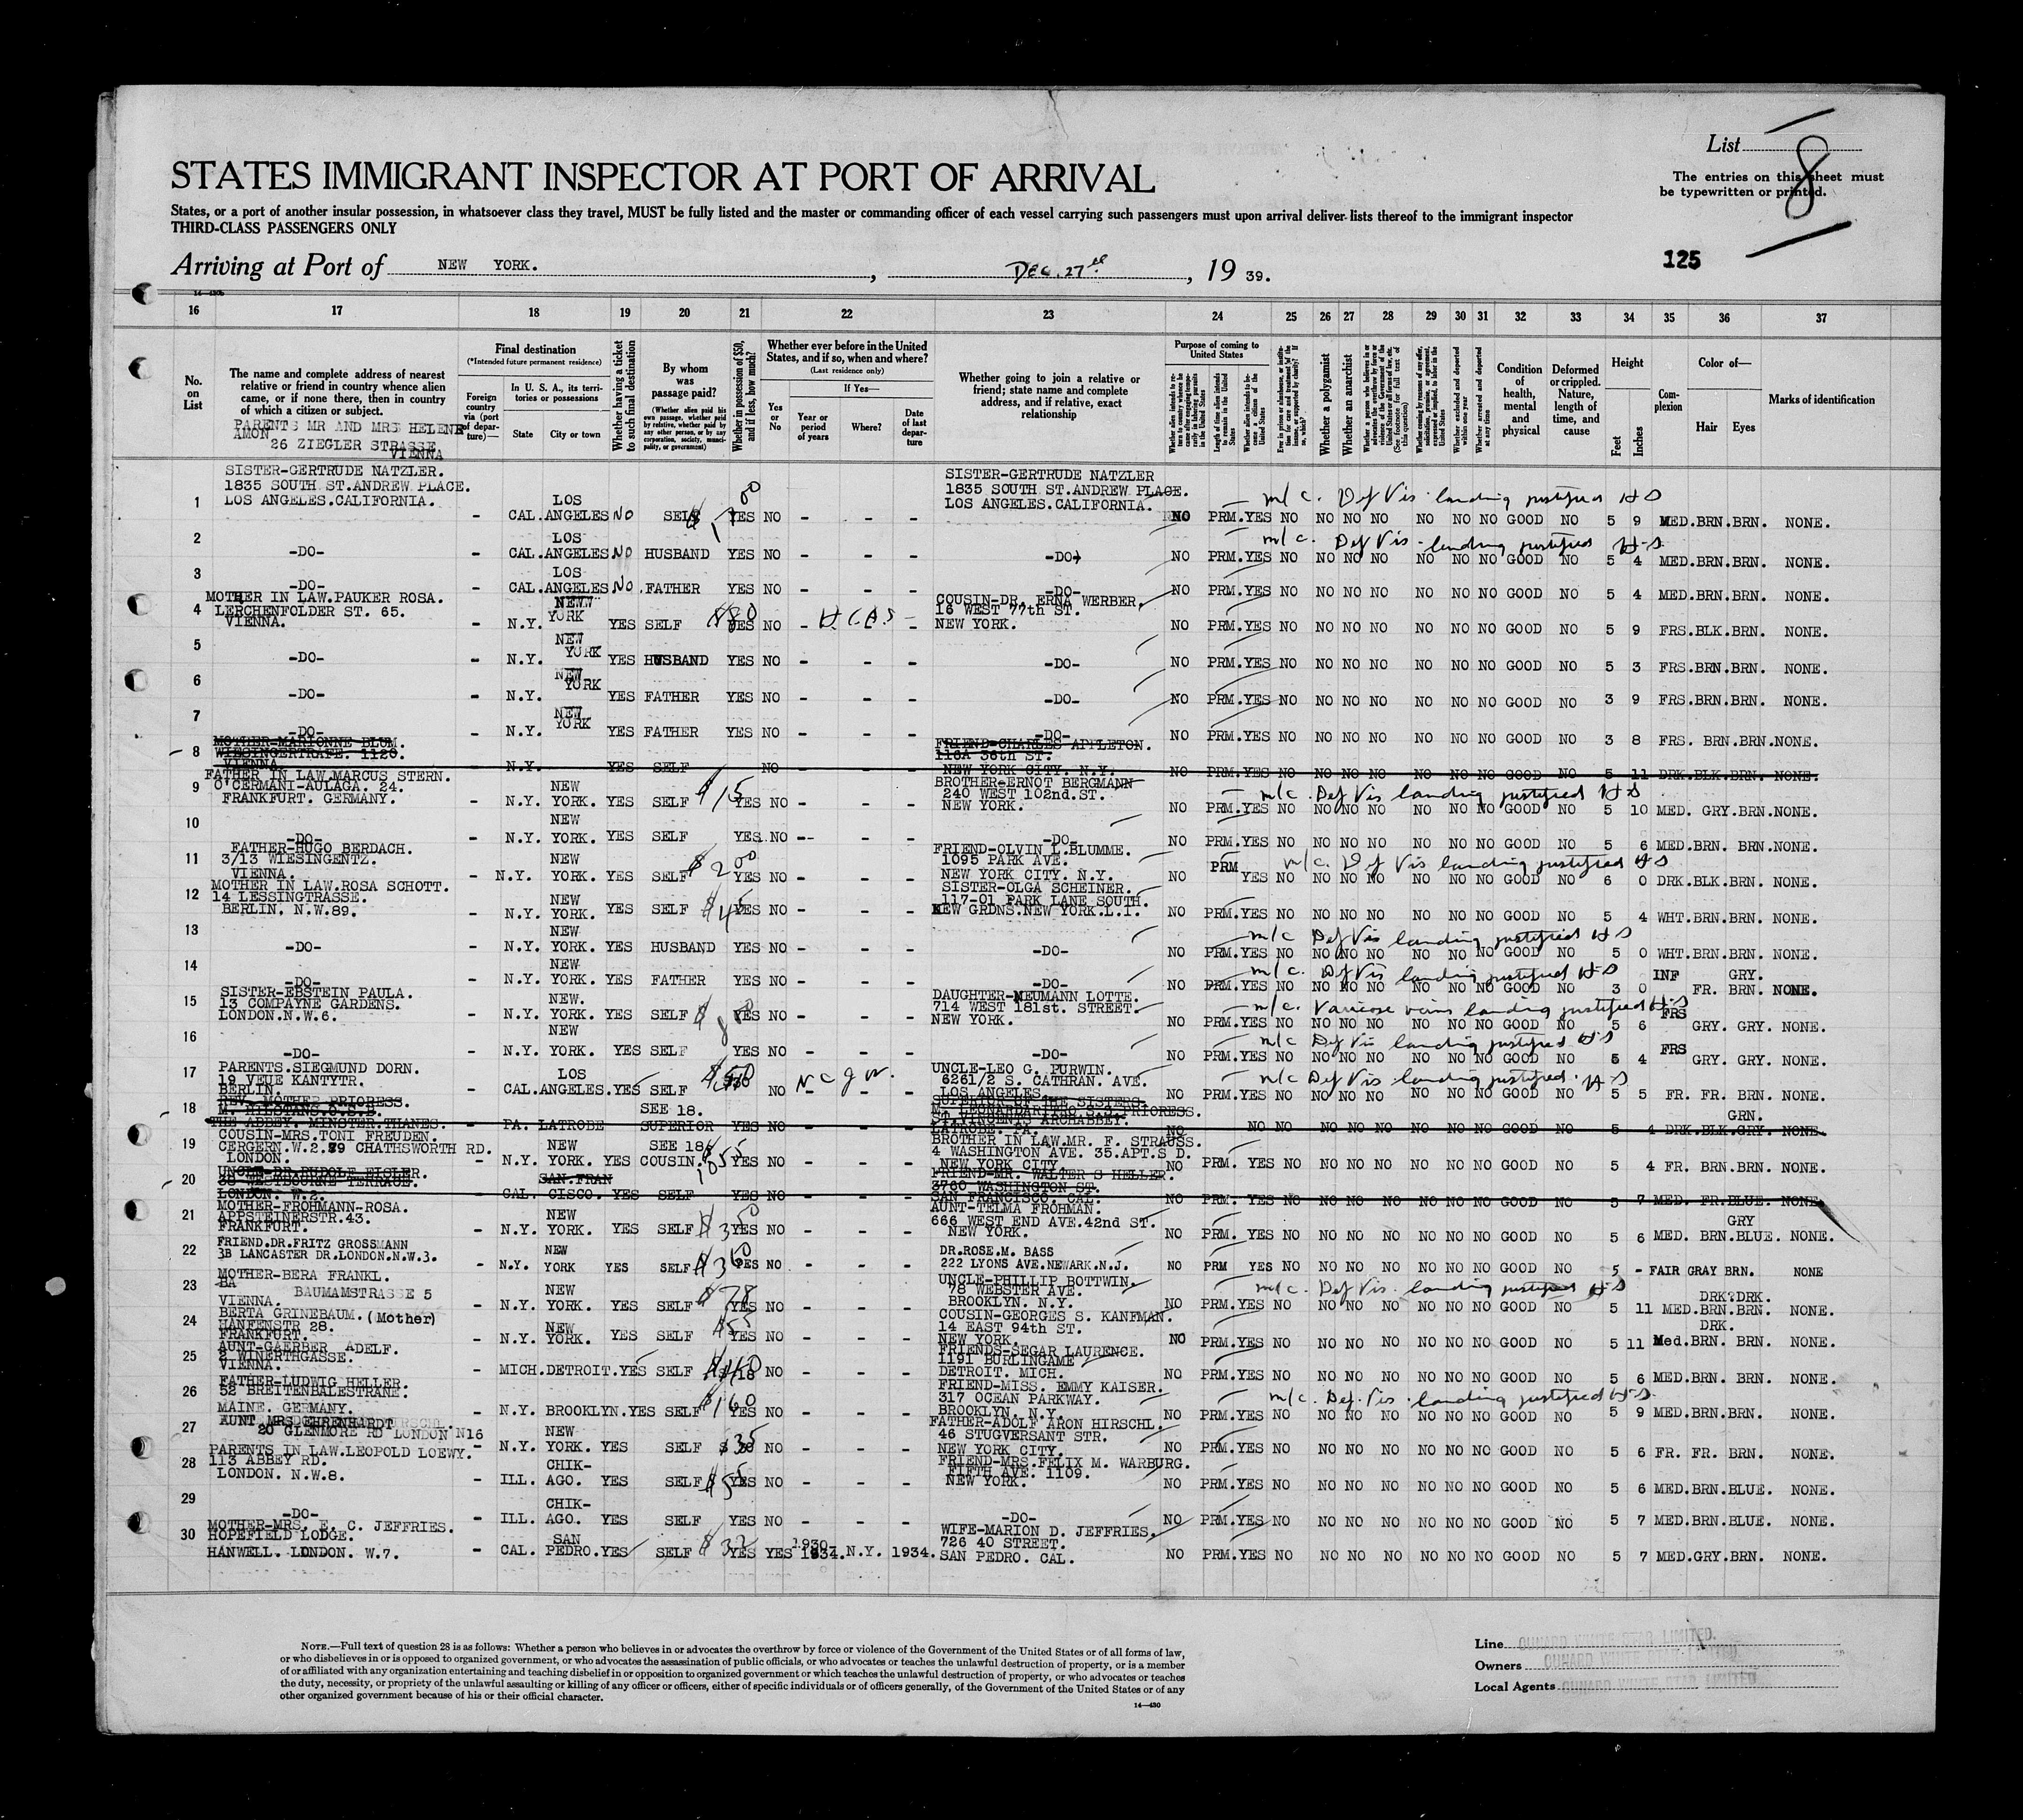 List 8
The entries on this sheet must
be typewritten or printed.
STATES IMMIGRANT INSPECTOR AT PORT OF ARRIVAL
States, or a port of another insular possession, in whatsoever class they travel, MUST be fully listed and the master or commanding officer of each vessel carrying such passengers must upon arrival deliver lists thereof to the immigrant inspector
THIRD-CLASS PASSENGERS ONLY
125
Arriving at Port of NEW YORK. , Dec. 27th , 19 39.
16 17 18 19 20 21 22 23 24 25 26 27 28 29 30 31 32 33 34 35 36 37
No. on List
The name and complete address of nearest relative or friend in country whence alien came, or if none there, then in country of which a citizen or subject.
Final destination
(*Intended future permanent residence)
Foreign country via (port of departure)—
In U. S. A., its territories or possessions
State
City or town
Whether having a ticket to such final destination
By whom was passage paid?
(Whether alien paid his own passage, whether paid by relative, whether paid by any other person, or by any corporation, society, municipality, or government)
Whether in possession of $50, and if less, how much?
Whether ever before in the United States, and if so, when and where?
(Last residence only)
Yes or No
If Yes—
Year or period of years
Where?
Date of last departure
Whether going to join a relative or friend; state name and complete address, and if relative, exact relationship
Purpose of coming to United States
Length of time alien intends to remain in the United States
Whether alien intends to become a citizen of the United States
Whether a polygamist
Whether an anarchist
Whether excluded and deported within one year
Whether arrested and deported at any time
Condition of health, mental and physical
Deformed or crippled. Nature, length of time, and cause
Height
Feet
Inches
Complexion
Color of—
Hair
Eyes
Marks of identification
PARENTS MR AND MRS HELENE
AMON
26 ZIEGLER STRASSE
VIENNA
SISTER-GERTRUDE NATZLER.
1835 SOUTH ST.ANDREW PLACE.
LOS ANGELES.CALIFORNIA.
1 - CAL. LOS ANGELES NO SELF YES NO - - - SISTER-GERTRUDE NATZLER
1835 SOUTH ST.ANDREW PLACE.
LOS ANGELES.CALIFORNIA.
m/c. Def Vis landing justified HS
NO PRM.YES NO NO NO NO NO NO NO GOOD NO 5 9 MED.BRN.BRN. NONE.
m/c. Def Vis landing justified HS
2 -DO- - CAL. LOS ANGELES. NO HUSBAND YES NO - - - -DO- NO PRM.YES NO NO NO NO NO NO NO GOOD NO 5 4 MED.BRN.BRN. NONE.
3 -DO- - CAL. LOS ANGELES. NO FATHER YES NO - - - -DO- NO PRM.YES NO NO NO NO NO NO NO GOOD NO 5 4 MED.BRN.BRN. NONE.
MOTHER IN LAW.PAUKER ROSA.
4 LERCHENFOLDER ST. 65.
VIENNA. - N.Y. NEW YORK YES SELF YES NO - - COUSIN-DR. ERNA WERBER.
16 WEST 77th ST.
NEW YORK. NO PRM.YES NO NO NO NO NO NO NO GOOD NO 5 9 FRS.BLK.BRN. NONE.
5 -DO- - N.Y. NEW YORK YES HUSBAND YES NO - - - -DO- NO PRM.YES NO NO NO NO NO NO NO GOOD NO 5 3 FRS.BRN.BRN. NONE.
6 -DO- - N.Y. NEW YORK YES FATHER YES NO - - - -DO- NO PRM.YES NO NO NO NO NO NO NO GOOD NO 3 9 FRS.BRN.BRN. NONE.
7 -DO- - N.Y. NEW YORK YES FATHER YES NO - - - -DO- NO PRM.YES NO NO NO NO NO NO NO GOOD NO 3 8 FRS. BRN.BRN.NONE.
MOTHER-MARIONNE BLUM.
8 WIESINGERTRAFE. 1120.
VIENNA. N.Y. YES SELF NO FRIEND-CHARLES APPLETON.
118A 36th ST.
NEW YORK CITY. N.Y. NO PRM.YES NO NO NO NO NO NO NO GOOD NO 5 11 DRK.BLK.BRN. NONE.
FATHER IN LAW.MARCUS STERN.
9 O'CERMANI-AULAGA. 24.
FRANKFURT. GERMANY. - N.Y. NEW YORK. YES SELF $15 YES NO - - - BROTHER-ERNOT BERGMANN
240 WEST 102nd.ST.
NEW YORK. m/c. Def Vis landing justified HS
NO PRM.YES NO NO NO NO NO NO NO GOOD NO 5 10 MED. GRY.BRN.NONE.
10 -DO- - N.Y. NEW YORK. YES SELF YES.NO - - - -DO- NO PRM.YES NO NO NO NO NO NO NO GOOD NO 5 6 MED.BRN. BRN.NONE.
FATHER-HUGO BERDACH.
11 3/13 WIESINGENTZ.
VIENNA. - N.Y. NEW YORK. YES SELF $200 YES NO - - - FRIEND-OLVIN L.BLUMME.
1095 PARK AVE.
NEW YORK CITY. N.Y. m/c. Def Vis landing justified HS
NO PRM YES NO NO NO NO NO NO NO GOOD NO 6 0 DRK.BLK.BRN. NONE.
MOTHER IN LAW.ROSA SCHOTT.
12 14 LESSINGTRASSE.
BERLIN. N.W.89. - N.Y. NEW YORK. YES SELF $45 YES NO - - - SISTER-OLGA SCHEINER.
117-01 PARK LANE SOUTH.
KEW GRDNS.NEW YORK.L.I. NO PRM.YES NO NO NO NO NO NO NO GOOD NO 5 4 WHT.BRN.BRN. NONE.
m/c Def Vis landing justified HS
13 -DO- - N.Y. NEW YORK. YES HUSBAND YES NO - - - -DO- NO PRM.YES NO NO NO NO NO NO NO GOOD NO 5 0 WHT.BRN.BRN. NONE.
m/c. Def Vis landing justified HS
14 -DO- - N.Y. NEW YORK. YES FATHER YES NO - - - -DO- NO PRM.YES NO NO NO NO NO NO NO GOOD NO 3 0 INF FR. GRY. BRN. NONE.
SISTER-EBSTEIN PAULA.
15 13 COMPAYNE GARDENS.
LONDON.N.W.6. - N.Y. NEW. YORK. YES SELF YES NO - - - DAUGHTER-NEUMANN LOTTE.
714 WEST 181st. STREET.
NEW YORK. m/c. Varicose veins landing justified HS
NO PRM.YES NO NO NO NO NO NO NO GOOD NO 5 6 FRS GRY. GRY. NONE.
m/c Def Vis landing justified HS
16 -DO- - N.Y. NEW YORK. YES SELF YES NO - - - -DO- NO PRM.YES NO NO NO NO NO NO NO GOOD NO 5 4 FRS GRY. GRY. NONE.
PARENTS.SIEGMUND DORN.
17 19 VEUE KANTYTR.
BERLIN. - CAL. LOS ANGELES. YES SELF NO - - - UNCLE-LEO G. PURWIN.
6261/2 S. CATHRAN. AVE.
LOS ANGELES. m/c Def Vis landing justified. HS
NO PRM.YES NO NO NO NO NO NO NO GOOD NO 5 5 FR. FR. BRN. NONE.
REV. MOTHER PRIORESS.
18 THE ABBEY. MINSTER.THANES. - PA. LATROBE SEE 18. SUPERIOR YES NO - - - SUPERIOR OF THE SISTERS.
ST.VINSENTS ARCHABBEY.
LATROBE. PA. NO NO NO NO NO NO NO NO NO GOOD NO 5 4 DRK.BLK.GRY. GRN. NONE.
COUSIN-MRS.TONI FREUDEN.
19 CERGERN.W.2.79 CHATHSWORTH RD.
LONDON. - N.Y. NEW YORK. YES SEE 18 COUSIN. YES NO - - - BROTHER IN LAW.MR. F. STRAUSS.
4 WASHINGTON AVE. 35.APT.S D.
NEW YORK CITY. NO PRM. YES NO NO NO NO NO NO NO GOOD NO 5 4 FR. BRN.BRN. NONE.
UNCLE-DR.RUDOLF EISLER.
20 38 WESTBOURNE TERRACE.
LONDON. W.2. - CAL. SAN.FRAN CISCO. YES SELF YES NO - - - FRIEND-MR. WALTER S HELLER.
3760 WASHINGTON ST.
SAN FRANCISCO. CAL. NO PRM. YES NO NO NO NO NO NO NO GOOD NO 5 7 MED. FR.BLUE. NONE
MOTHER-FROHMANN-ROSA.
21 APPSTEINERSTR.43.
FRANKFURT. - N.Y. NEW YORK. YES SELF YES NO - - - AUNT-TELMA FROHMAN.
666 WEST END AVE.42nd ST.
NEW YORK. NO PRM. YES NO NO NO NO NO NO NO GOOD NO 5 6 MED. BRN.BLUE. GRY NONE.
FRIEND.DR.FRITZ GROSSMANN
22 3B LANCASTER DR.LONDON.N.W.3. - N.Y. NEW YORK YES SELF YES NO - - - DR.ROSE.M. BASS
222 LYONS AVE.NEWARK.N.J. NO PRM YES NO NO NO NO NO NO NO GOOD NO 5 - FAIR GRAY BRN. NONE
MOTHER-BERA FRANKL.
23 BAUMAMSTRASSE 5
VIENNA. - N.Y. NEW YORK. YES SELF $78 YES NO - - - UNCLE-PHILLIP BOTTWIN.
78 WEBSTER AVE.
BROOKLYN. N.Y. m/c. Def Vis. landing justified HS
NO PRM.YES NO NO NO NO NO NO NO GOOD NO 5 11 MED. DRK?DRK. BRN.BRN. NONE.
BERTA GRINEBAUM. (Mother)
24 HANFENSTR 28.
FRANKFURT. - N.Y. NEW YORK. YES SELF $55 YES NO - - - COUSIN-GEORGES S. KANFMAN.
14 EAST 94th ST.
NEW YORK. NO PRM.YES NO NO NO NO NO NO NO GOOD NO 5 11 Med. DRK. BRN. BRN. NONE.
AUNT-GAERBER ADELF.
25 2 WINERTHGASSE.
VIENNA. - MICH.DETROIT.YES SELF NO - - - FRIENDS-SEGAR LAURENCE.
1191 BURLINGAME
DETROIT. MICH. NO PRM.YES NO NO NO NO NO NO NO GOOD NO 5 6 MED.BRN. BRN. NONE.
FATHER-LUDWIG HELLER.
26 52 BREITENBALESTRANE.
MAINE. GERMANY. - N.Y. BROOKLYN.YES SELF $160 YES NO - - - FRIEND-MISS. EMMY KAISER.
317 OCEAN PARKWAY.
BROOKLYN. N.Y. m/c. Def. Vis. landing justified HS
NO PRM.YES NO NO NO NO NO NO NO GOOD NO 5 9 MED.BRN.BRN. NONE.
AUNT MRS EHRENHARDT
27 20 GLENMORE RD LONDON N16 - N.Y. NEW YORK. YES SELF $35 NO - - - FATHER-ADOLF ARON HIRSCHL.
46 STUGVERSANT STR.
NEW YORK CITY. NO PRM.YES NO NO NO NO NO NO NO GOOD NO 5 6 FR. FR. BRN. NONE.
PARENTS IN LAW.LEOPOLD LOEWY.
28 113 ABBEY RD.
LONDON. N.W.8. - ILL. CHIK- AGO. YES SELF YES NO - - - FRIEND-MRS.FELIX M. WARBURG.
FIFTH AVE. 1109.
NEW YORK. NO PRM.YES NO NO NO NO NO NO NO GOOD NO 5 6 MED.BRN.BLUE. NONE.
29 -DO- - ILL. CHIK- AGO. YES SELF YES NO - - - -DO- NO PRM.YES NO NO NO NO NO NO NO GOOD NO 5 7 MED.BRN.BLUE. NONE.
MOTHER-MRS. E. C. JEFFRIES.
30 HOPEFIELD LODGE.
HANWELL. LONDON. W.7. - CAL. SAN PEDRO.YES SELF $32 YES YES 1930 1934. N.Y. 1934. WIFE-MARION D. JEFFRIES.
726 40 STREET.
SAN PEDRO. CAL. NO PRM.YES NO NO NO NO NO NO NO GOOD NO 5 7 MED.GRY.BRN. NONE.
NOTE.—Full text of question 28 is as follows: Whether a person who believes in or advocates the overthrow by force or violence of the Government of the United States or of all forms of law,
or who disbelieves in or is opposed to organized government, or who advocates the assassination of public officials, or who advocates or teaches the unlawful destruction of property, or is a member
of or affiliated with any organization entertaining and teaching disbelief in or opposition to organized government or which teaches the unlawful destruction of property, or who advocates or teaches
the duty, necessity, or propriety of the unlawful assaulting or killing of any officer or officers, either of specific individuals or of officers generally, of the Government of the United States or of any
other organized government because of his or their official character.
14—430
Line CUNARD WHITE STAR LIMITED.
Owners CUNARD WHITE STAR LIMITED
Local Agents CUNARD WHITE STAR LIMITED